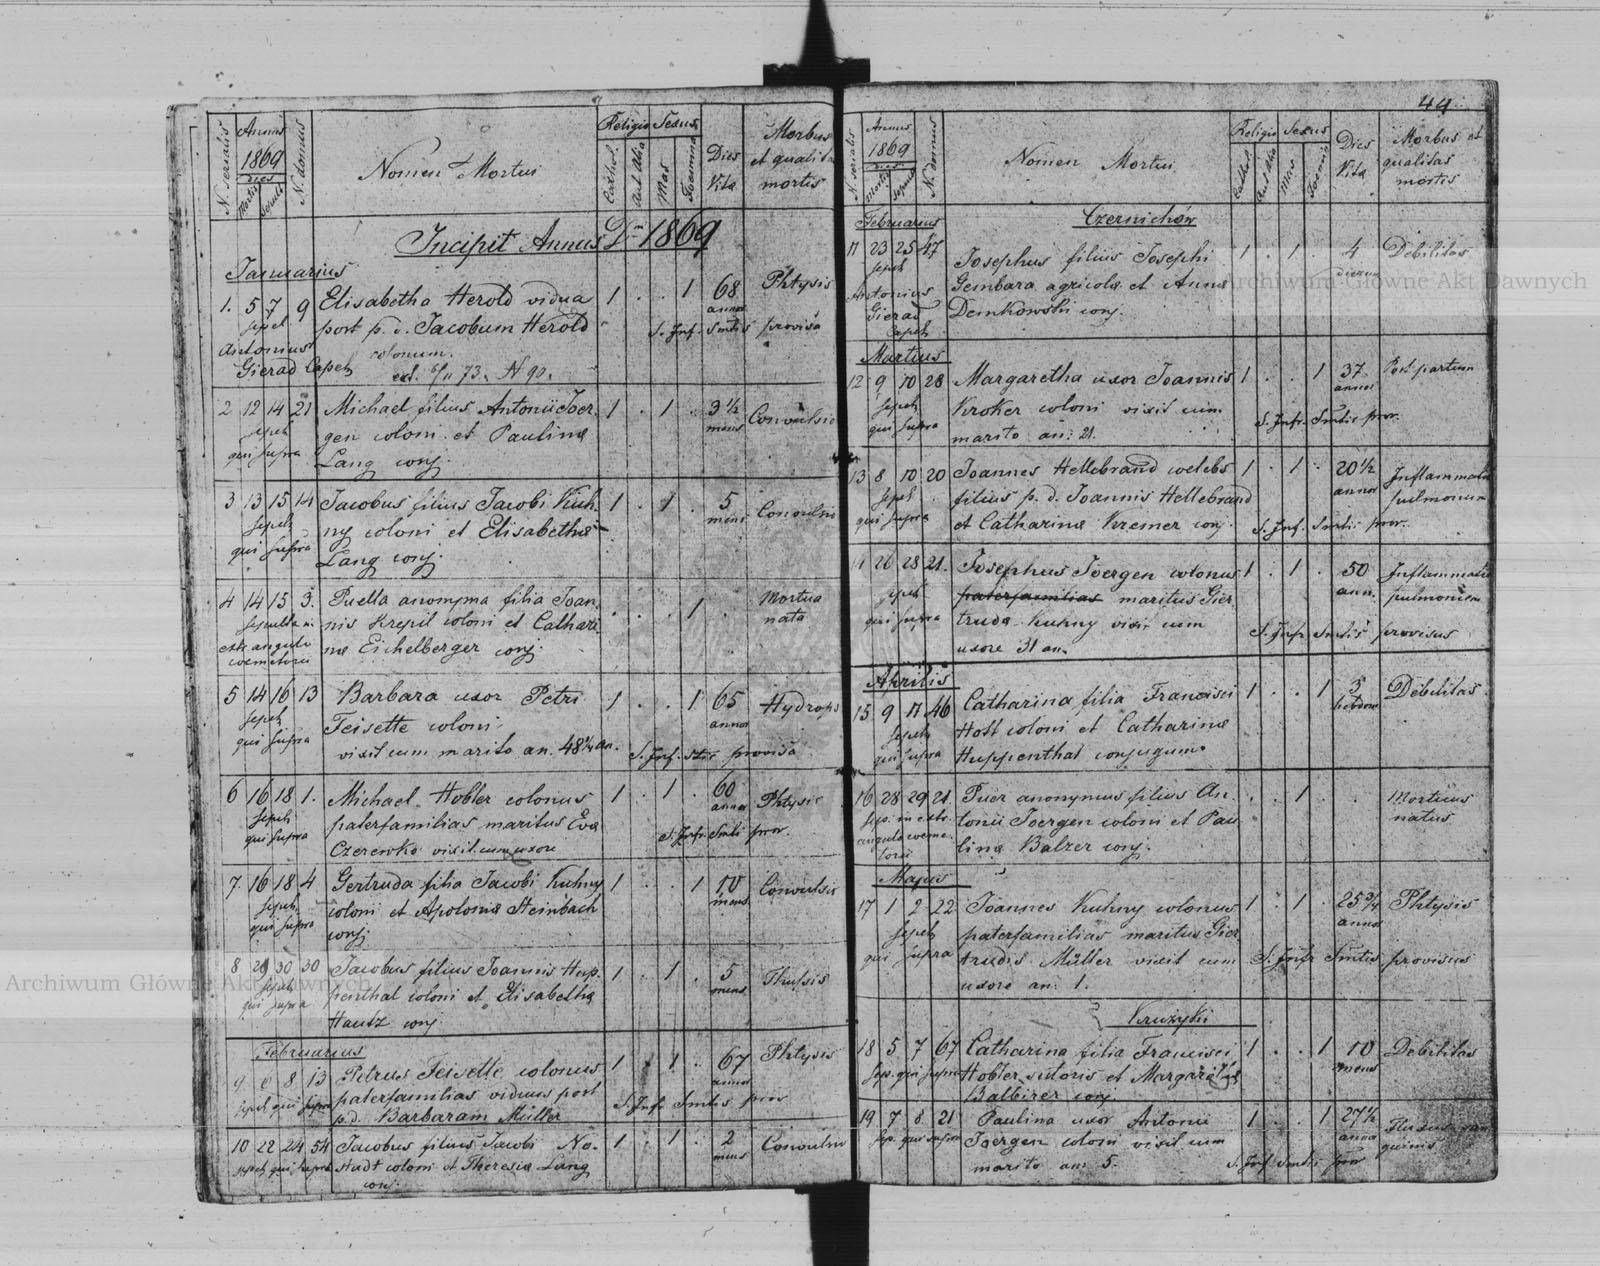 N. serialis
Annus
1869
dies
Mortis
Sepult.
N. domus
Nomen Mortui
Religio
Sexus
Cathol.
Aut Alia
Mas
Foemina
Dies
Vitæ
Morbus
et qualitas
mortis
Incipit Annus D-ni 1869
Januarius
1. 5 7 9 Elisabetha Herold vidua 1 . . 1 68 Phtysis
sepel. post p. d. Jacobum Herold annor S. Inf. Smtis provisa
Antonius colonum.
Gierad Capel.
2 12 14 21 Michael filius Antonii Joer- 1 . 1 . 3 ½ Convulsio
sepel. gen coloni et Paulinæ mens
qui supra Lang conj.
3 13 15 14 Jacobus filius Jacobi Kuh- 1 . 1 . 5 Convulsio
sepel. ny coloni et Elisabethæ mens
qui supra Lang conj.
4 14 15 3. Puella anonyma filia Joan- . . . 1 . Mortua
sepulta in nis Krepil coloni et Cathari- nata
extr. angulo næ Eichelberger conj.
coemeterii
5 14 16 13 Barbara uxor Petri 1 . . 1 65 Hydrops
sepel. Feisette coloni annor
qui supra vixit cum marito an. 48 ½ an. S. Inf. Stis provisa
6 16 18 1. Michael Hobler colonus 1 . 1 . 60 Phtysis
sepel. paterfamilias maritus Evæ annor
qui supra Czerewko vixit cum uxore S. Infr. Smti prov.
7. 16 18 4 Gertruda filia Jacobi Kuhny 1 . . 1 10 Convulsio
sepel. coloni et Apoloniæ Steinbach mens
qui supra conj.
8 29 30 30 Jacobus filius Joannis Hup- 1 . 1 . 5 Thussis
sepel. penthal coloni et Elisabethæ mens
qui supra Hautz conj.
Februarius
9 6 8 13 Petrus Feisette colonus 1 . 1 . 67 Phtysis
sepel. qui supra paterfamilias viduus post annor
p.d. Barbaram Müller S. Inf. Smtis prov
10 22 24 54 Jacobus filius Jacobi No- 1 . 1 . 2 Convulsio
sepel. qui supra stadt coloni et Theresiæ Lang mens
conj.
44
N. serialis
Annus
1869
dies
Mortis
Sepult.
N. domus
Nomen Mortui
Religio
Sexus
Cathol.
Aut Alia
Mas
Foemin.
Dies
Vitæ
Morbus et
qualitas
mortis
Februarius Czernichów
11 23 25 47 Josephus filius Josephi 1 . 1 . 4 Debilitas
sepel. Gembara agricolæ et Annæ dierum
Antonius Demkowski conj.
Gierad
Capel.
Martius
12 9 10 28 Margaretha uxor Joannis 1 . . 1 37 Post partum
sepel. Kroker coloni vixit cum annor
qui supra marito an: 21. S. Infr. Smtis prov.
13 8 10 20 Joannes Hellebrand coelebs 1 . 1 . 20 ½ Inflammatio
sepel. filius p. d. Joannis Hellebrand annor pulmonum
qui supra et Catharinæ Kremer conj. S. Inf. Smtis prov.
14 26 28 21. Josephus Joergen colonus 1 . 1 . 50 Inflammatio
sepel. paterfamilias maritus Gier- ann. pulmonum
qui supra trudæ Kuhny vixit cum S. Infr Smtis provisus
uxore 31 an.
Aprilis
15 9 11 46 Catharina filia Francisci 1 . . 1 5 Debilitas
sepel. Hott coloni et Catharinæ hebdom
qui supra Huppenthal conjugum
16 28 29 21 Puer anonymus filius An- . . 1 . . Mortuus
sep. in extr. tonii Joergen coloni et Pau- natus
angulo coeme- linæ Balzer conj.
terii
Majus
17 1 2 22 Joannes Kuhny colonus 1 . 1 . 25 ¾ Phtysis
sepel. paterfamilias maritus Gier- annor
qui supra trudis Müller vixit cum S. Infr Smtis provisus
uxore an: 1.
Kružyki
18 5 7 67 Catharina filia Francisci 1 . . 1 10 Debilitas
Sep. qui supra Hobler sutoris et Margarethæ mens
Balbirer conj.
19 7 8 21 Paulina uxor Antonii 1 . . 1 27 ½
sep. qui supra Joergen coloni vixit cum annor
marito an: 5. S. Inf Smtis prov
Archiwum Główne Akt Dawnych
Archiwum Główne Akt Dawnych